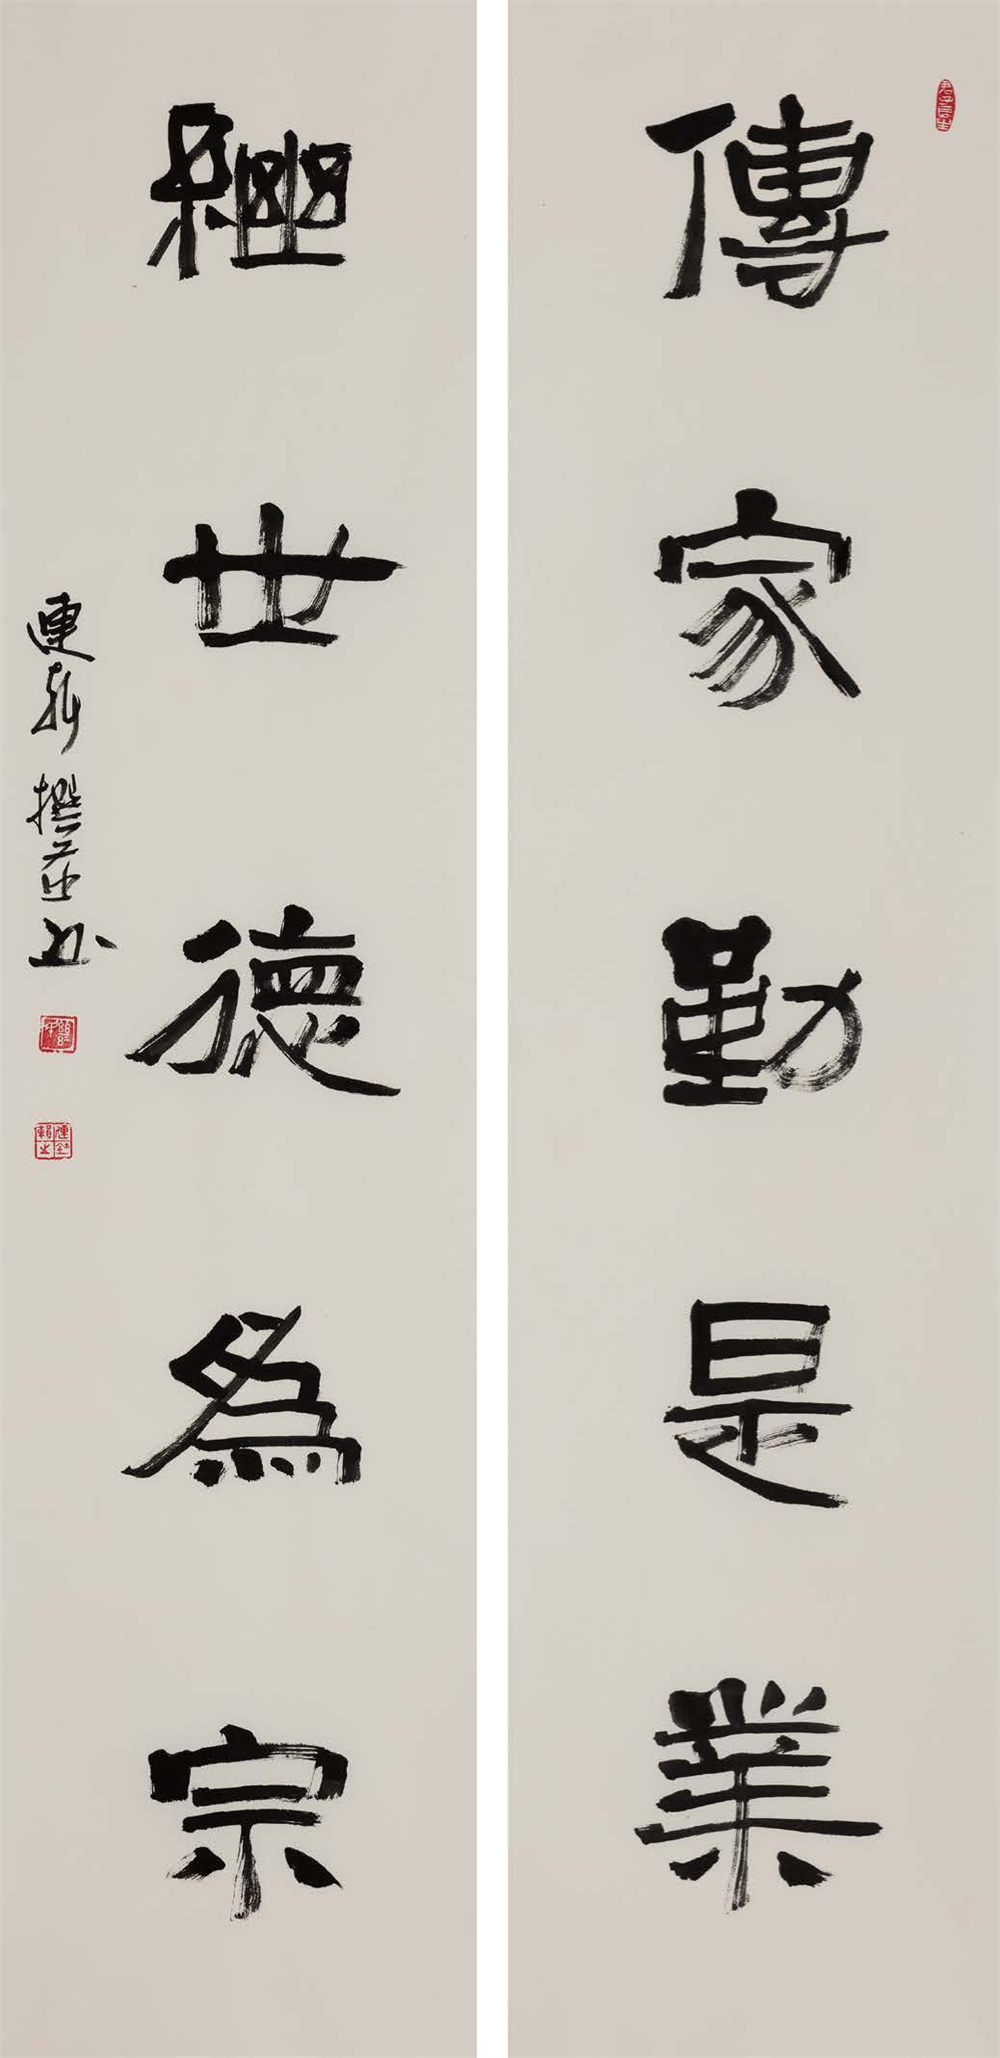 傳家勤是業
繼世德為宗
連新撰并書